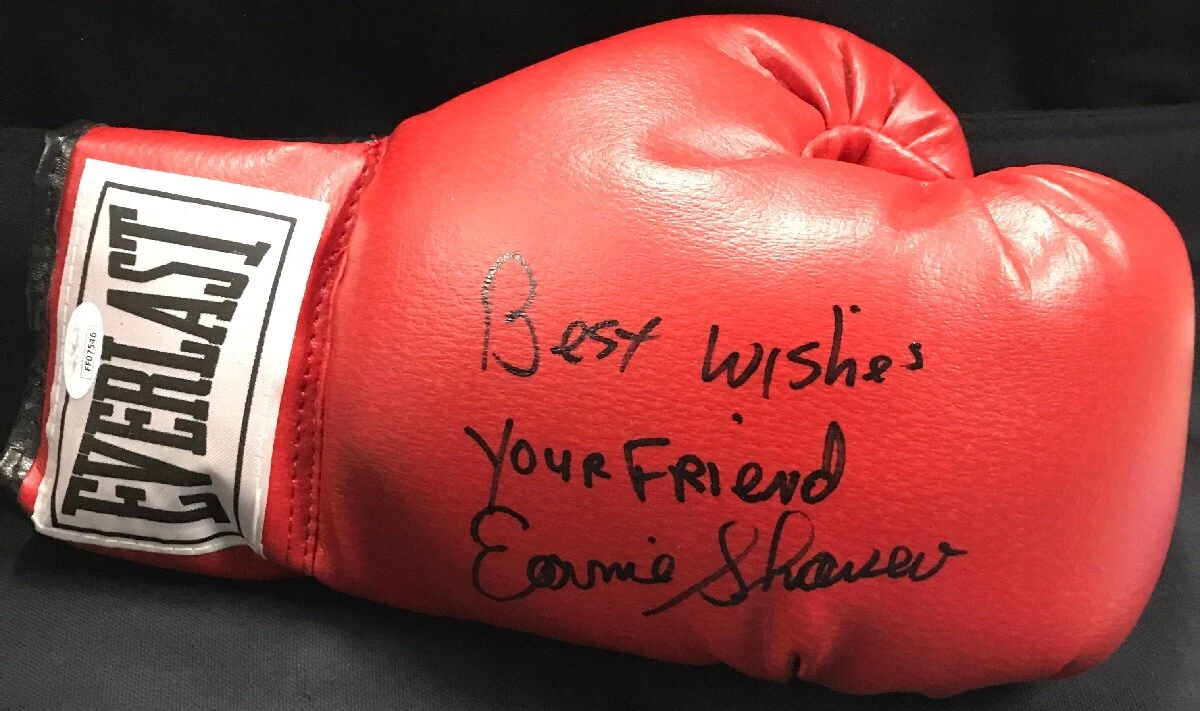 EVERLAST
FF07546
Best wishes
Your Friend
Earnie Shavers